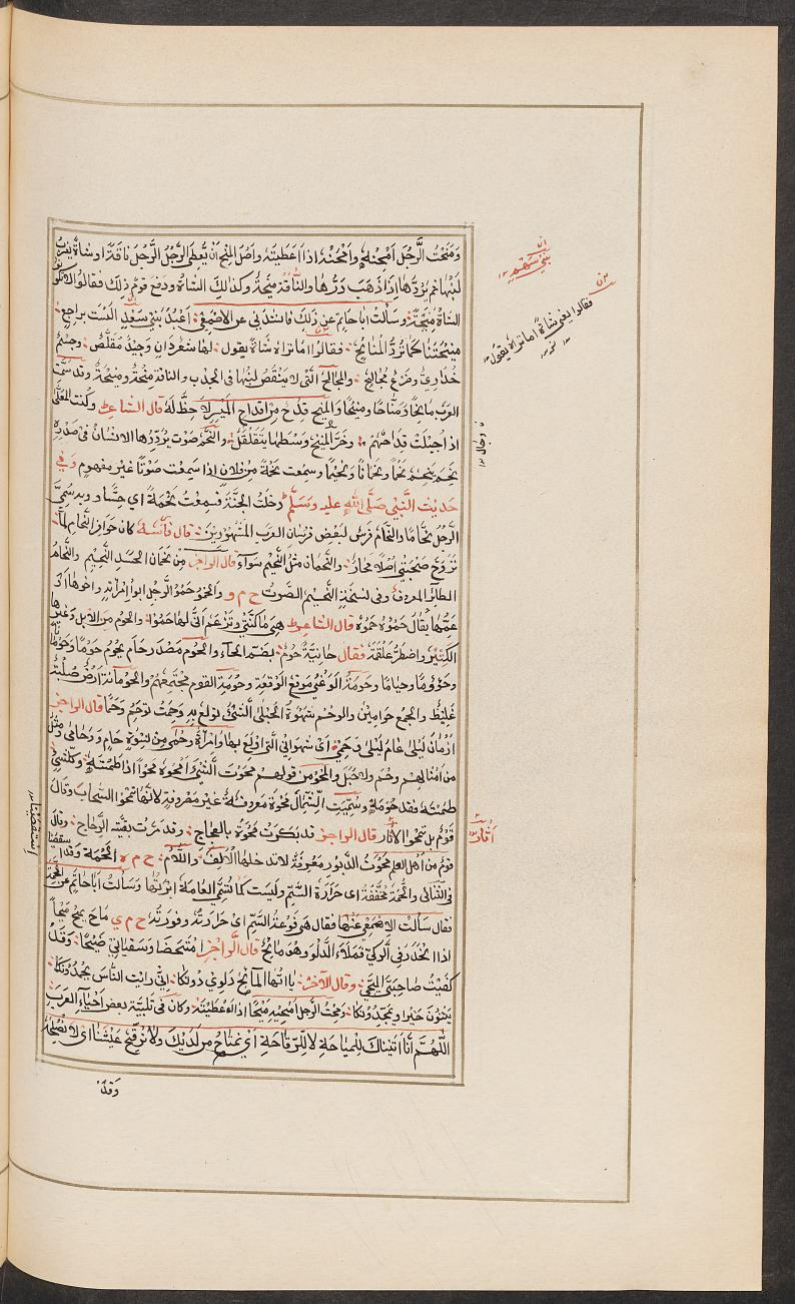 وَمَنَحْتُ الرَّجُلَ اَمْنِحُهُ وَاَمْنَحُهُ اذا اَعْطَيْتَهُ وَاَصْلُ المَنْحِ اَنْ يُعْطِيَ الرَّجُلُ الرَّجُلَ نَاقَةً اَوْ شاةً يَشْرَبُ
لَبَنَهَا ثم يَرُدُّهَا اِذَا ذَهَبَ دَرُّهَا والنَّاقَة مَنِيْحَةٌ وكَذٰلِكَ الشاةُ ودَفَعَ قومٌ ذلِكَ فقالوا لا تكون
الشاةُ مَنِيْحَةً وسَألْت اباحاتِمٍ عن ذٰلِكَ فانشدَني عن الاصْمَعِيِّ اَعَبْدَ بَنِيْ سَعْدٍ اَلَسْتَ براجِعٍ
مَنِيْحَتَنَا كَمَا تُرَدُّ المَنَائِحُ فقالُوا امَا تراه شاةً يقول لها شَعَرٌ دَانٍ وَجِيْدٌ مُقَلَّصٌ وجِسْمٌ
خُدَارِيٌّ وضَرْعٌ مُجَالِحٌ والمُجَالِحُ الَّتي لا يَنْقُصُ لبنُها في الجدْب والناقة مِنْحَةٌ ومَنِيْحَةٌ وقد سَمَّت
العَرَبُ مانِحًا وَمَنَّاحًا ومَنِيْحًا والمَنِيح قِدْحٌ مِنْ اقداحِ المَيْسِرِ لا حظَّ لَهُ قال الشاعر وكُنْتَ المُعَلّى
اذ اجِيْلَتْ قداحُهُمْ وخَرَّ المَنِيْحُ وَسْطَها يَتَقَلْقَلُ والنَّحْمُ صَوْت يُرَدِّدُها الانسانُ في صَدْرِهِ
نَحَمَ يَنْحِمُ نَحْمًا ونَحَمَانًا ونَحِيْمًا وسمِعت نَحْمَةً مِنْ فلانٍ اذا سَمِعْت صَوْتًا غير مفهومٍ وَفي
حَديثِ النَّبِي صَلَّى اللهُ عليه وَسَلَّم دخَلْتُ الجنَّةَ فَسَمِعْتُ نَحْمَةً اي حِسًّا وبه سُمِّيَ
الرَّجُلُ نحَّامًا والنَّحَّامُ فَرَسٌ لبَعْضِ فرْسَانِ العرب المَشْهُوْرِيْنَ قال كَانَّ حَوَافِرَ النَّحَامِ لَمَّا
تَرَوَّحَ صُحْبَتِي اُصُلًا مَحَارُ والنَّحَمَانُ مثلُ النَّحِيْمِ سَوَاءٌ قال الراجز مِن نَحَمَانِ الحَسَدِ النَّحِيْمِ والنُّحَامُ
الطائرُ المعروف وفي نسخةٍ النَّحِيْمُ الصَّوْتُ ح م و وَالحَمْوُ حَمْوُ الرَّجُلِ ابواْ امْرَأتِهِ واخُوهَا اوْ
عَمُّهَا يقَال حَمُوْهُ حَمْؤُهُ قال الشاعر هِيَ مَا كَنَّتي وتَزْعَمُ اَنِّي لها حَمُوْ والحَومُ مِن الابل وَغيرِها
الكثِيْرُ واضطرَّ علقَمَة فقال حانِيَّةٌ حُوْمُ بضَمّ الحاء والحَوْم مَصْدَر حامَ يَحُوْمُ حَوْمًا وَحَوَمَانًا
وحُؤُومًا وحِيَامًا وحَومَةُ الوَغَىٰ مَوْقِعُ الوَقعَةِ وحَوْمَة القوم مُجْتَمعُهُمْ والحَوْمَانة اَرْضٌ صُلْبَةٌ
غَلِيْظٌ والجَمْعُ حَوَامِيْنُ والوحَمُ شَهْوَةُ الحُبْلَى الشَّيْءَ تُوْلعُ بهِ وَحِمَتْ تَوْحَمُ وَحَمًا قال الراجز
اَزْمَانَ لَيْلَى عَامَ لَيْلَى وَحَمِيْ اي شهوانِي الَّتِي اُوْلعُ بها وامْرَأَةٌ وحْمَىٰ مِنْ نِسْوَةٍ حامٍ وَوَحَامَى ومَثَلٌ
من امْثالِهِم وحْمٌ ولا حَبَلَ والمَحْوُ مِنْ قولِهِم مَحَوْتُ الشَّيْءَ اَمْحُوْهُ مَحْوًا اذا طمَسْتَهُ وكلُّ شيْءٍ
طمَسْتَهُ فقَد مَحَوْتَهُ وسُمِّيَتِ الشِّمَالُ مَحْوَةَ مَعروفةٌ غيرَ مَصْروفةٍ لانَّها تَمْحُوا السَّحَابَ وقالَ
قومٌ بل تمحُوا الآثار قال الراجز قد بَكَرَتْ مَحْوَةُ بالعجاجِ وقدمَّرَتْ بَقيَّة الرَّجاجِ وقال
قوم مِنْ اَهل العلم مَحْوَةُ الدَّبُوْر مَعْروفَةٌ لا تدخلها الاَلِفُ واللّامُ ح م ه الحُمَة وقد استقصَيْنا
فى الثُّنائى والحُمَةُ مُخَفَّفةٌ اى حَرارَةُ السَّمِّ وليسَت كما تُسَمِّي العامةُ ابْرَتَهُا وسَألتُ اَبَاحَاتِمٍ عن الحُمَةِ
فقال سَألت الاصْمَعِيّ عنْهَا فقال هِيَ فَوْعَةُ السَّمِّ اى حَرارَتُهُ وفَورَتُه ح م ي ماحَ يَمِيْحُ مَيْحاً
اذا انْحَدَرَ في الرَّكيِّ فَمَلَأَ الدَّلْوَ وهُوَ مائِحٌ قال الرَّاجز امْتَحَضَا وَسَقيَاني ضَيْحًا وَقَدْ
كَفَيْتُ صَاحِبَيَّ المَيْحَ وقال الآخر يا ايُّها المائِحُ دَلوِي دُوْنَكا اِنّي رَايت النَّاسَ يَحْمَدُوْنَكا
يثْنُوْنَ خَيْرًا ويُمَجِّدُوْنَكا ومِحْتُ الرَّجل اَمِيْحُهُ مَيْحًا اذا اَعْطَيْتَهُ وكانَ في تَلْبِيَة بعض اَحْيَاءِ العرَب
اللّٰهُمَّ اِنَّا اَتَيْنَاكَ لِلْمِيَاحَةِ لا للرَّقاحَةِ اَيْ نَمْتاحُ مِن لَدَيْكَ ولا نُرَقِّحُ عَيْشَنا اي لا نُصْلِحُهُ
وَقَدْ
بَنِي سَهْمٍ
فقالوا يعني شاةً اما تراهُ يقول